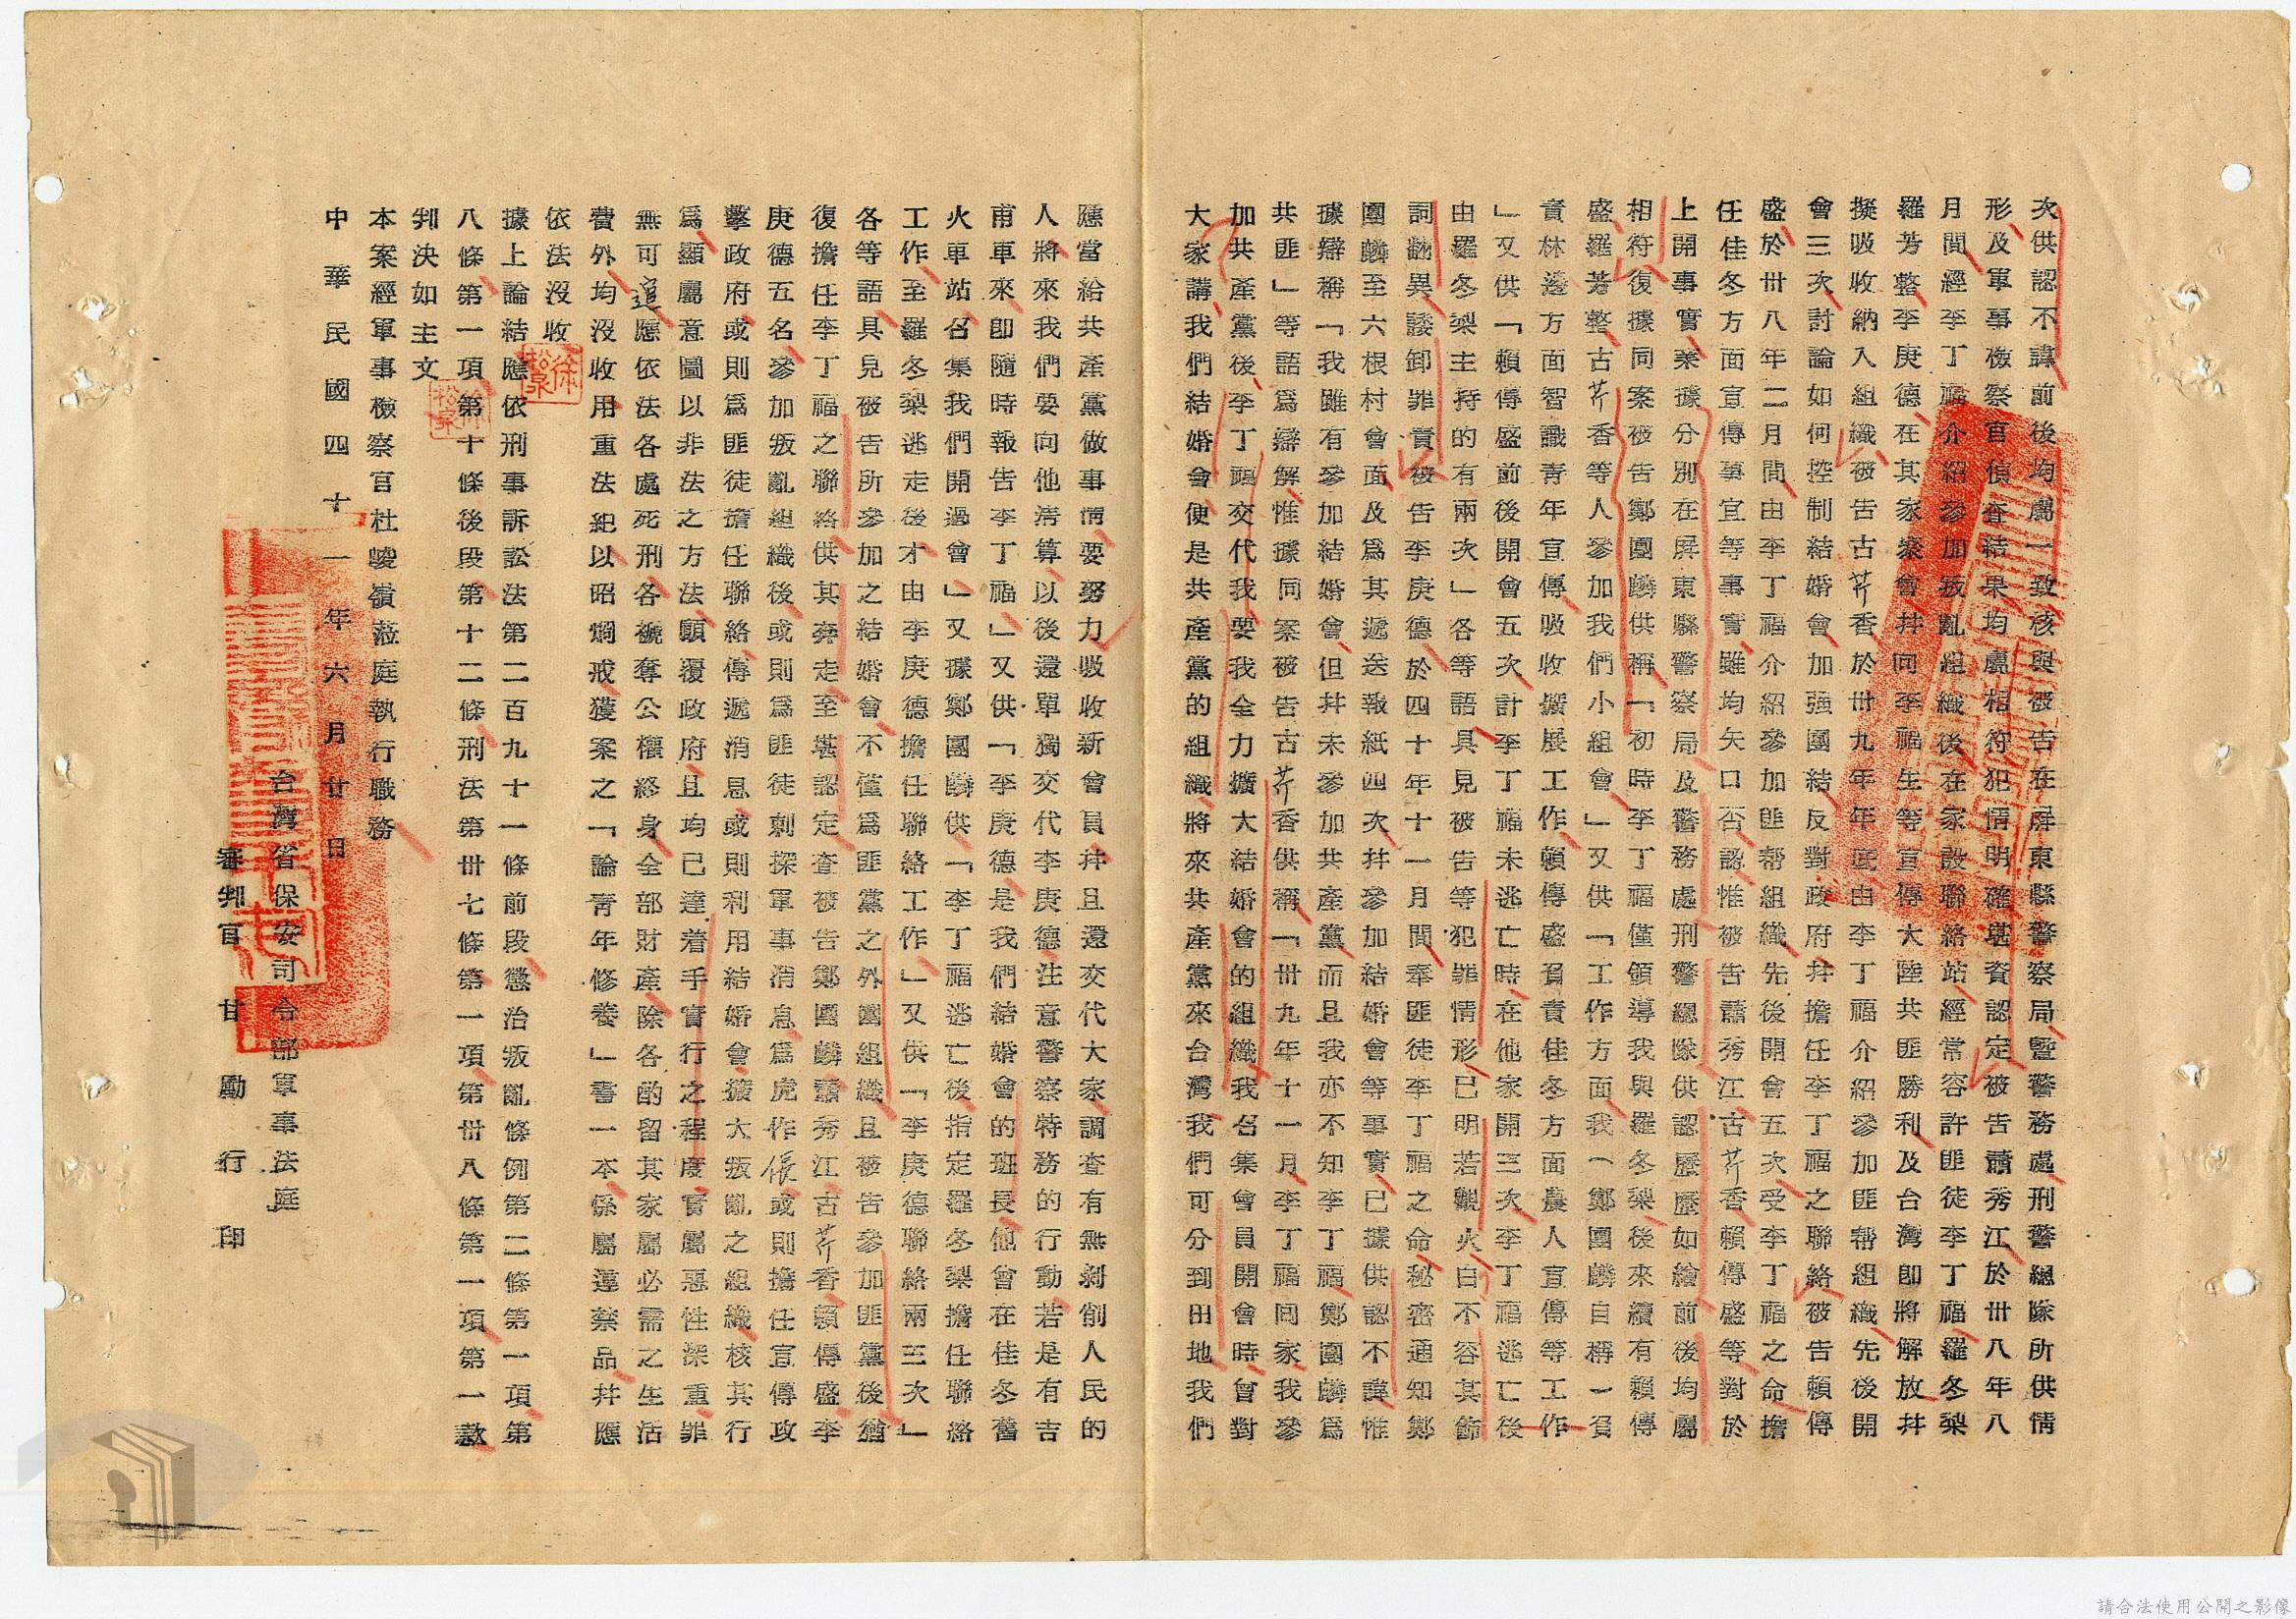 次供認不諱前後均屬一致核與被告在屏東縣警察局暨警務處刑警總隊所供情
形及軍事檢察官偵查結果均盧相符犯情明確堪資認定被告蕭秀江於卅八年八
月間經李丁福介紹參加叛亂組織後在家設聯絡站經常容許匪徒李丁福羅冬梨
羅芳整李庚德在其家集會幷同李福生等宣傳大陸共匪勝利及台灣即將解放幷
擬吸收納入組織被告古芹香於卅九年年底由李丁福介紹參加匪帮組織先後開
會三次討論如何控制結婚會加强團結反對政府幷擔任李丁福之聯絡被告賴傳
盛於卅八年二月間由李丁福介紹參加匪帮組織先後開會五次受李丁福之命擔
任佳冬方面宣傳事宜等事實雖均矢口否認惟被告蕭秀江古芹香賴傳盛等對於
上開事實業據分別在屏東縣警察局及警務處刑警總隊供認歷歷如繪前後均屬
相符復據同案被告鄭團麟供稱「初時李丁福僅領導我與羅冬梨後來續有賴傳
盛羅芳整古芹香等人參加我們小組會」又供「工作方面我（鄭團麟自稱）負
責林邊方面智識青年宣傳吸收擴展工作賴傳盛負責佳冬方面農人宣傳等工作
」又供「賴傳盛前後開會五次計李丁福未逃亡時在他家開三次李丁福逃亡後
由羅冬梨主持的有兩次」各等語具見被告等犯罪情形已明若觀火自不容其飾
詞翻異諉卸罪責被告李庚德於四十年十一月間奉匪徒李丁福之命秘密通知鄭
團麟至六根村會面及爲其遞送報紙四次幷參加結婚會等事實已據供認不諱惟
據辯稱「我雖有參加結婚會但幷未參加共產黨而且我亦不知李丁福鄭團麟爲
共匪」等語爲辯解惟據同案被告古芹香供稱「卅九年十一月李丁福回家我參
加共產黨後李丁福交代我要我全力擴大結婚會的組織我召集會員開會時曾對
大家講我們結婚會便是共產黨的組織將來共產黨來台灣我們可分到田地我們
應當給共產黨做事情要努力吸收新會員幷且還交代大家調查有無剥削人民的
人將來我們要向他淸算以後還單獨交代李庚德注意警察特務的行動若是有吉
甫車來即隨時報告李丁福」又供「李庚德是我們結婚會的班長他曾在佳冬舊
火車站召集我們開過會」又據鄭團麟供「李丁福逃亡後指定羅冬梨擔任聯絡
工作至羅冬梨逃走後才由李庚德擔任聯絡工作」又供「李庚德聯絡兩三次」
各等語具見被告所參加之結婚會不僅爲匪黨之外圍組織且被告參加匪黨後猶
復擔任李丁福之聯絡供其奔走至堪認定查被告鄭團麟蕭秀江古芹香賴傳盛李
庚德五名參加叛亂組織後或則爲匪徒刺探軍事消息爲虎作倀或則擔任宣傳政
擊政府或則爲匪徒擔任聯絡傳遞消息或則利用結婚會擴大叛亂之組織核其行
爲顯屬意圖以非法之方法顚覆政府且均已達着手實行之程度實屬惡性深重罪
無可逭應依法各處死刑各褫奪公權終身全部財產除各酌留其家屬必需之生活
費外均沒收用重法紀以昭烱戒獲案之「論青年修養」書一本係屬違禁品幷應
依法沒收
據上論結應依刑事訴訟法第二百九十一條前段懲治叛亂條例第二條第一項第
八條第一項第十條後段第十二條刑法第卅七條第一項第卅八條第一項第一款
判決如主文
本案經軍事檢察官杜峻嶺蒞庭執行職務
中華民國四十一年六月廿日
台灣省保安司令部軍事法庭
審判官甘勵行印
徐松泉
徐松泉
請合法使用公開之影像